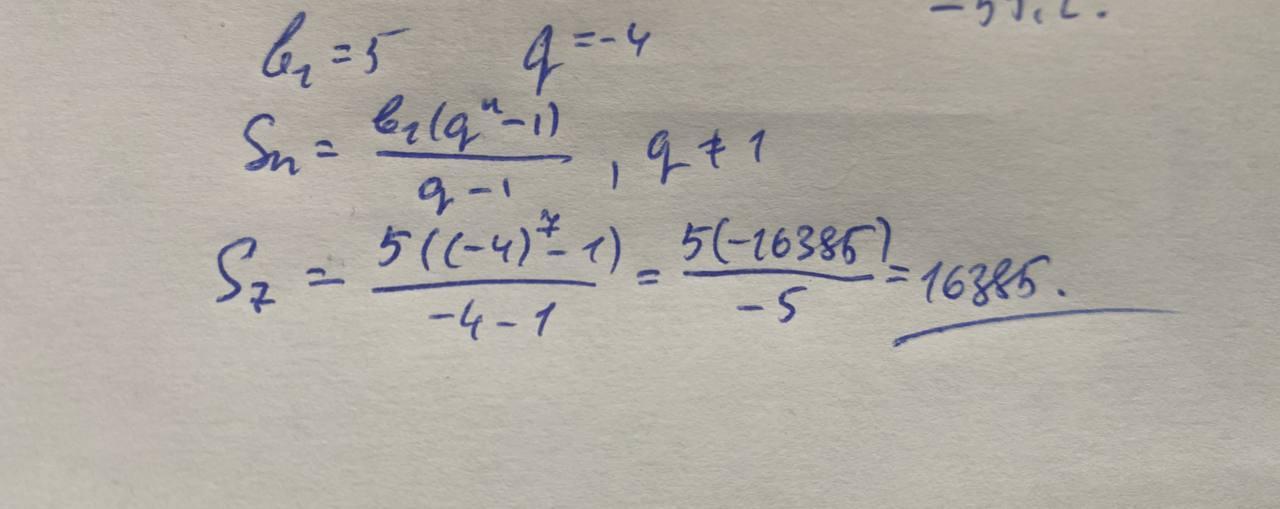 b₁ = 5 q = -4
Sn = b₁(qⁿ - 1) / q - 1 , q ≠ 1
S₇ = 5((-4)⁷ - 1) / -4 - 1 = 5(-16385) / -5 = 16385.